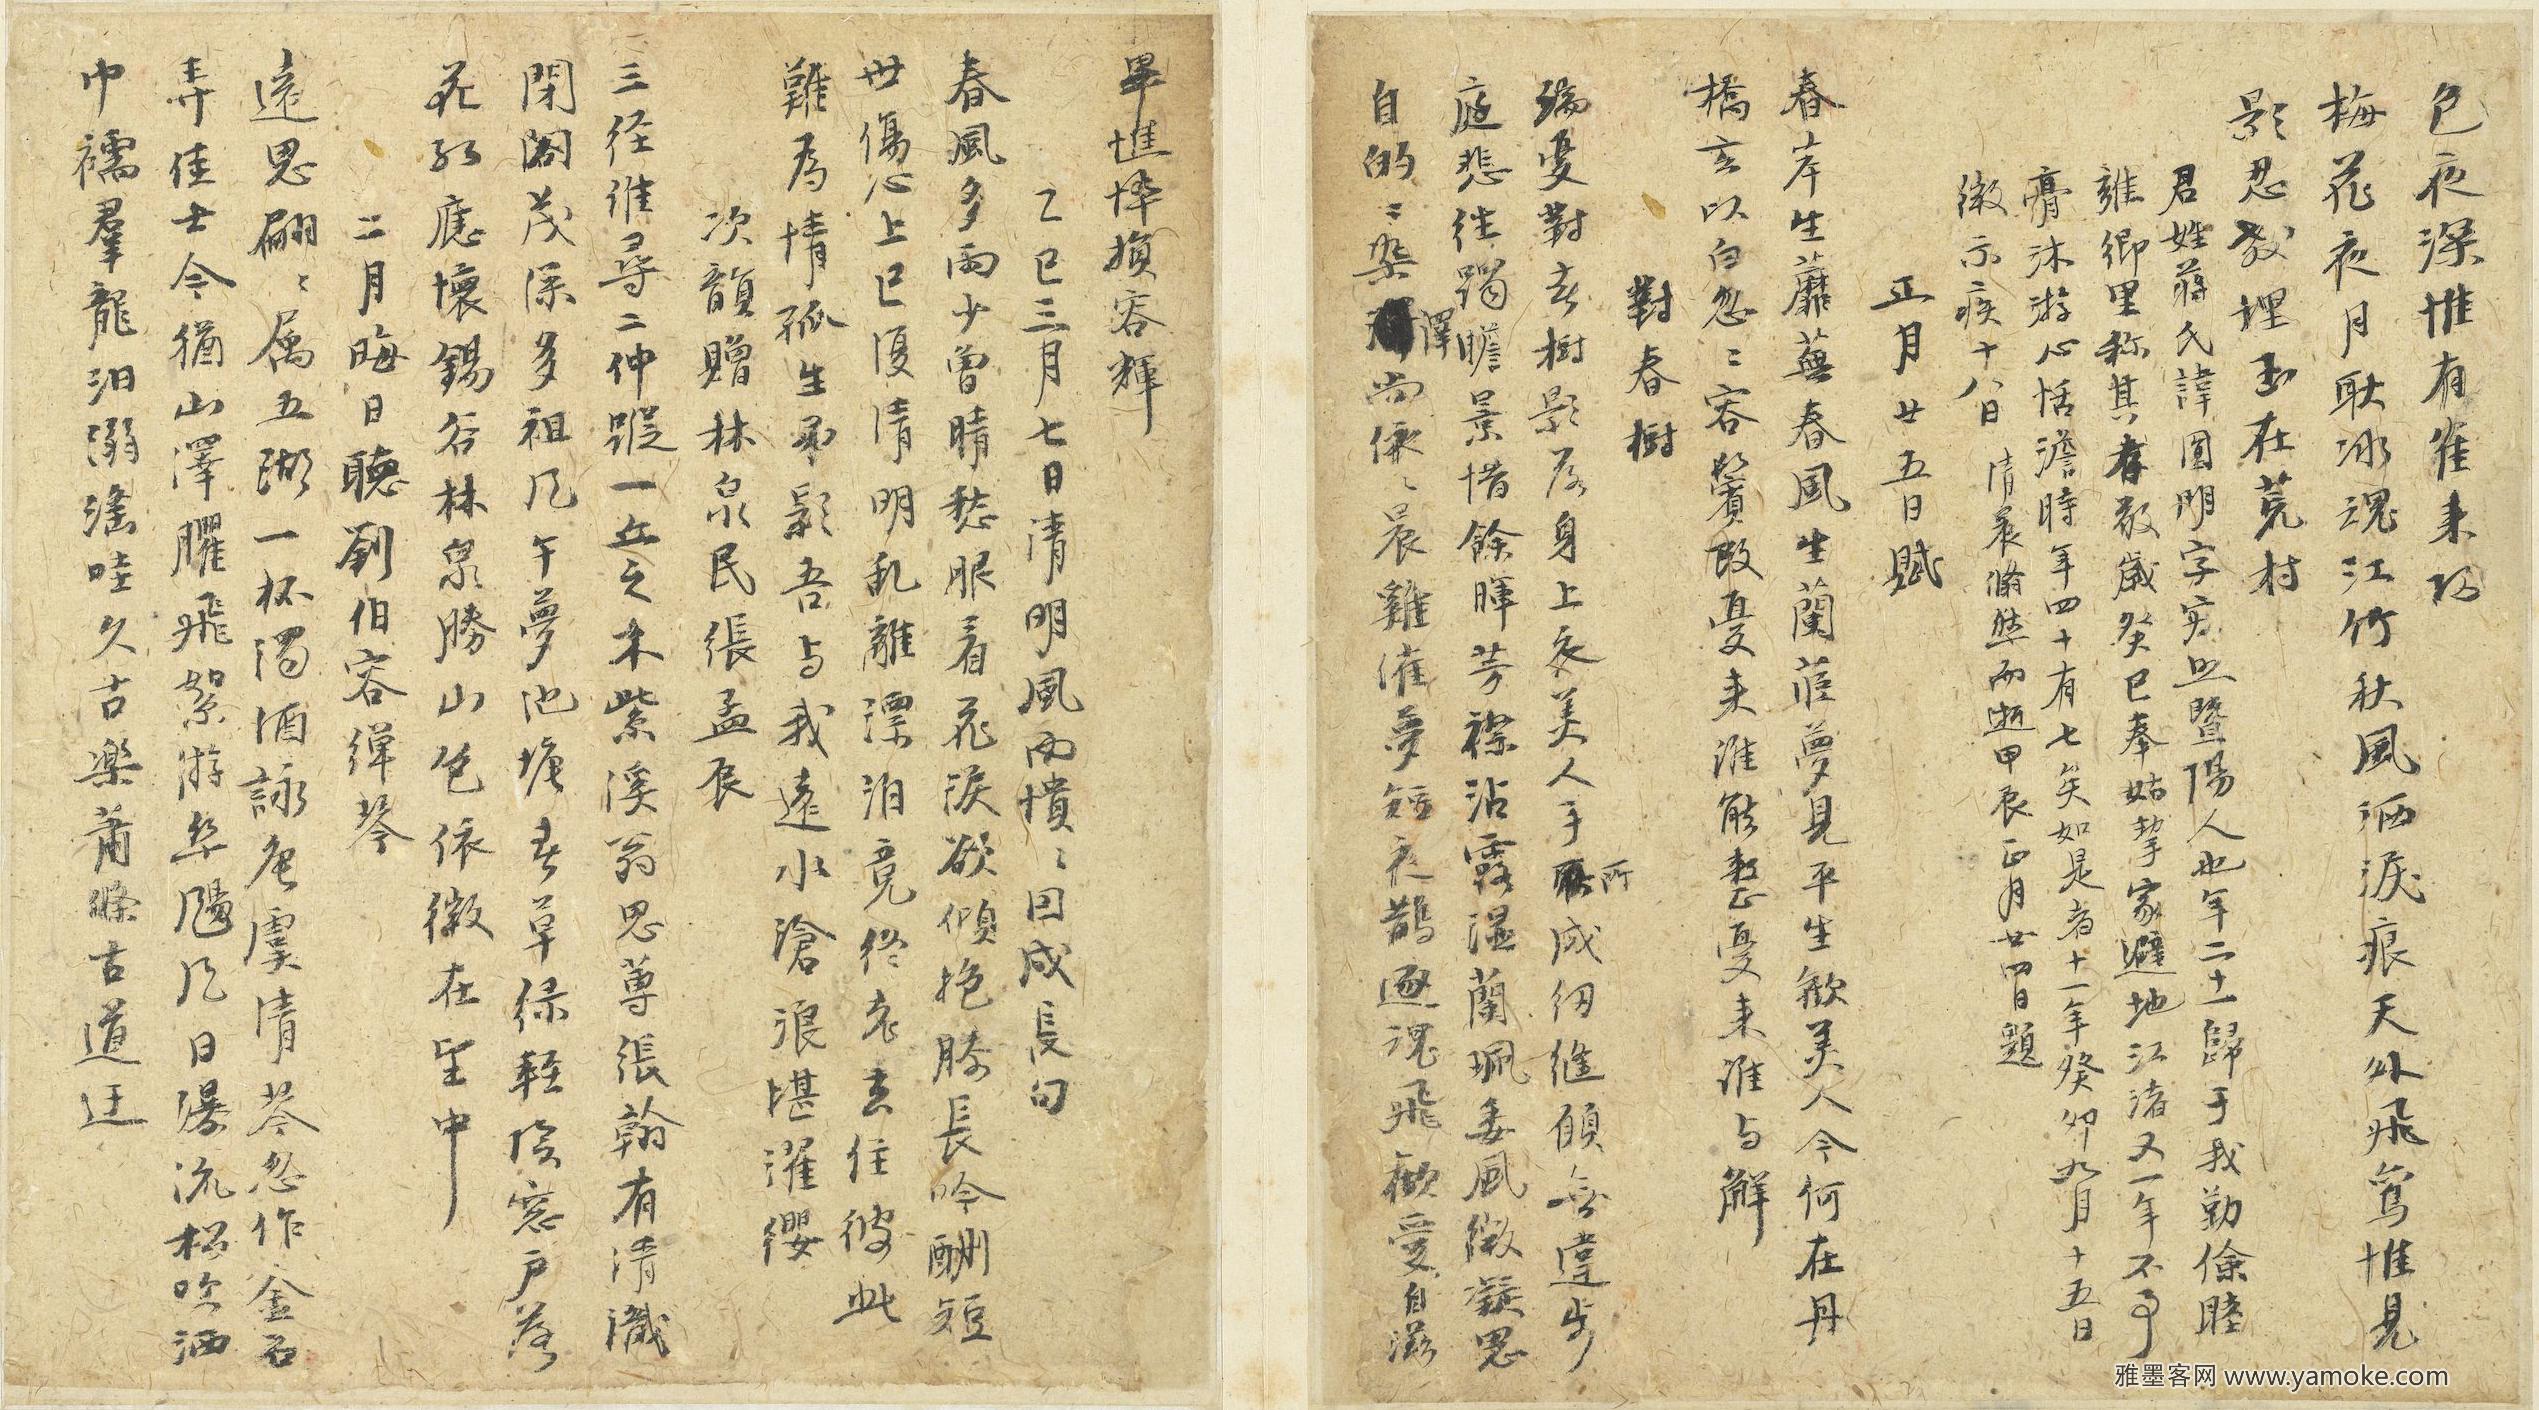 色夜深惟有雀来
梅花夜月耿冰魂江竹秋風洒淚痕天外飛鸞惟見
影忍教埋玉在荒村
君姓蔣氏諱圓明字寂照暨陽人也年二十一歸于我勤儉睦
雍鄉里称其孝敬歲癸巳奉姑挈家避地江渚又一年不事
膏沐游心恬澹時年四十有七矣如是者十一年癸卯九月十五日
微示疾十八日清晨翛然而逝甲辰正月廿四日題
正月廿五日賦
春岸生蘼蕪春風生蘭茝夢見平生歡美人今何在丹
橋玄以白忽〻容鬢改憂来誰能整憂来誰与解
對春樹
端憂對春樹影落身上衣美人手所成仞僊願無違步
庭悲往躅瞻景惜餘暉芳襟沾露溼蘭珮委風微凝思
自的〻染澤尚依〻晨雞催夢短夜鵲逐魂飛歡愛自滋
畢憔悴損容輝
乙巳三月七日清明風雨憒〻因成長句
春風多雨少曾晴愁眼看花淚欲傾抱膝長吟酬短
世傷心上巳復清明乱離漂泊竟終老去住彼此
難為情孤生吊影吾与我遠水滄浪堪濯纓
次韻贈林泉民張孟辰
三径誰尋二仲蹤一丘之木紫溪翁思蓴張翰有清識
閉閤茂深多祖風午夢池塘春草綠輕陰窓户落
花紅應懷錫谷林泉勝山色依微在望中
二月晦日聽劉伯容彈琴
遠思翩〻属五湖一杯濁酒詠唐虞清琴忽作金石
弄佳士今猶山澤臞飛絮游絲颺風日瀑流松吹洒
巾襦羣龍汩溺滛哇久古樂蕭條古道迂